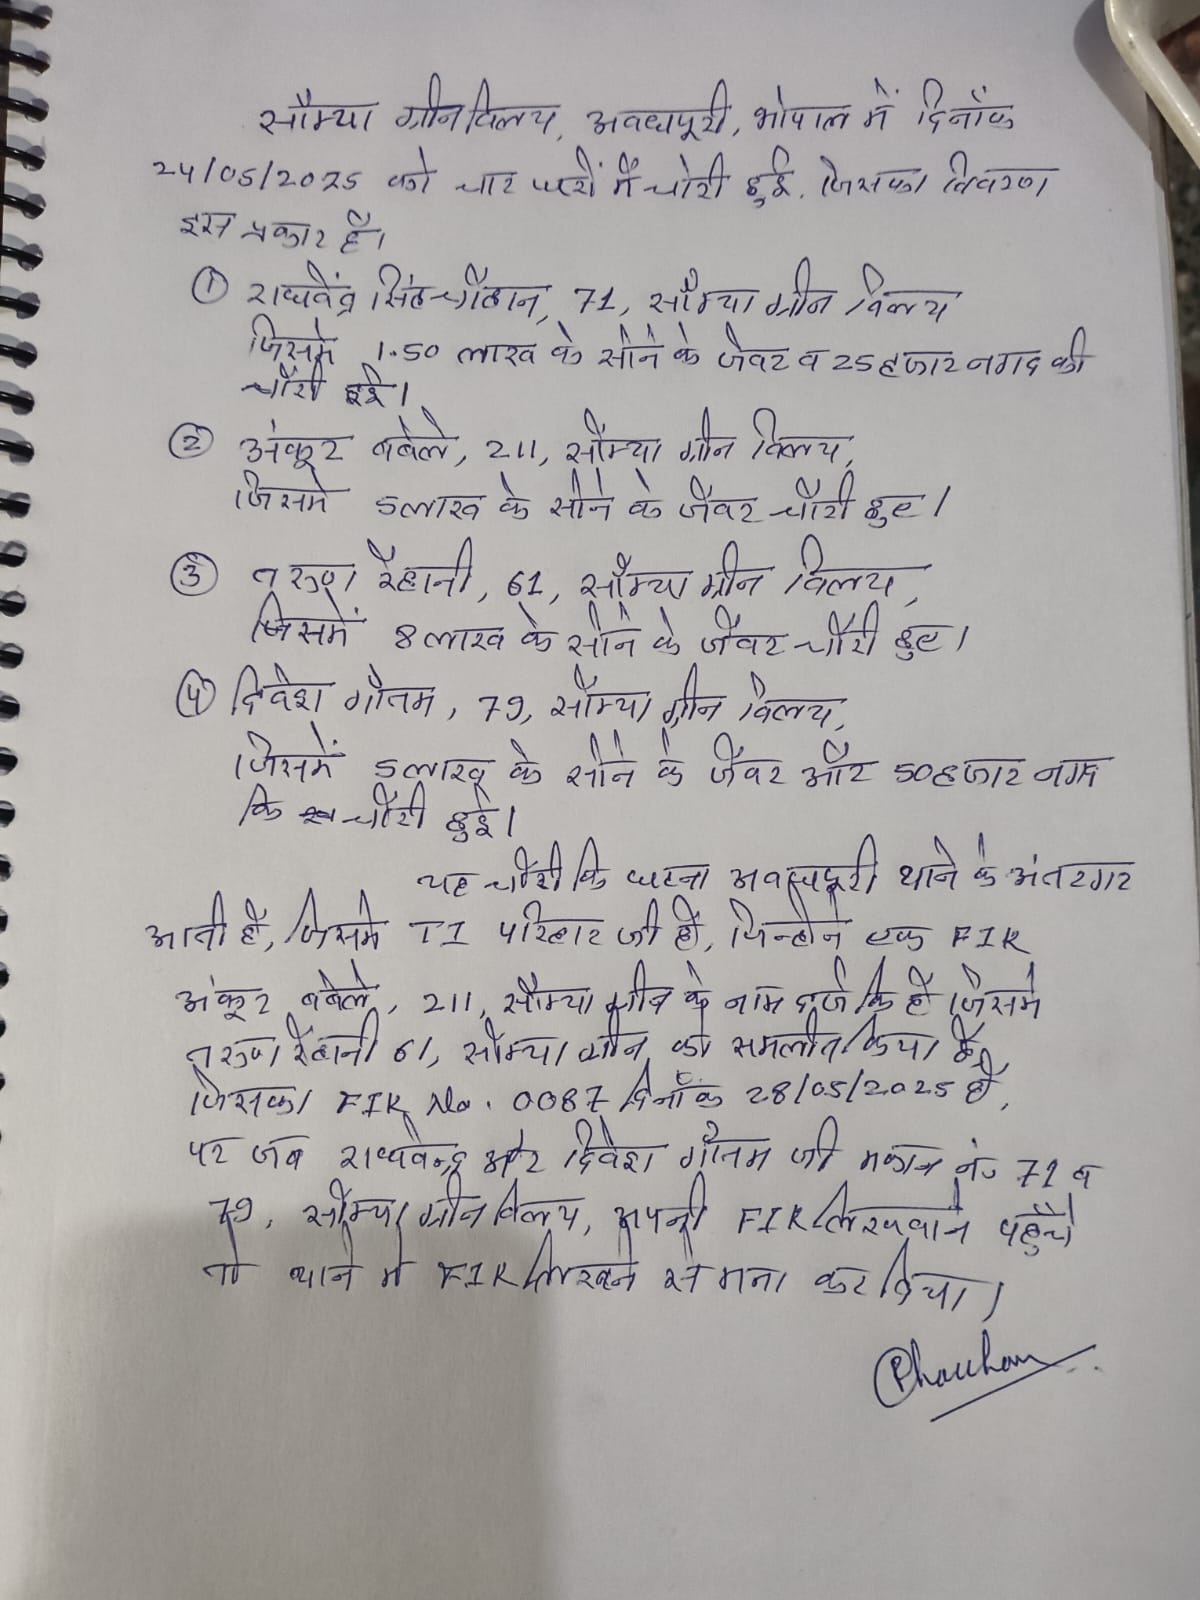 सौम्या ग्रीन विलय, अवधपूरी, भोपाल में दिनाँक
24/05/2025 को चार घरों में चोरी हुई. जिसका विवरण
इस प्रकार है।
① राघवेंद्र सिंह चौहान, 71, सौम्या ग्रीन विलय
जिसमे 1.50 लाख के सोने के जेवर व 25 हजार नगद की
चोरी हुई।
② अंकूर बबेले, 211, सौम्या ग्रीन विलय,
जिसमे 5 लाख के सोने के जैवर चौरी हुए।
③ तरुण रैहानी, 61, सौम्या ग्रीन विलय,
जिसमें 8 लाख के सोने के जैवर चौरी हुए।
④ दिवेश गौतम, 79, सौम्या ग्रीन विलय,
जिसमें 5 लाख के सोने के जैवर और 50 हजार नगद
कि चौरी हुई।
यह चौरी कि घटना अवधपूरी थाने के अंतरगर
आती हैं, जिसमे TI परिहार जी हैं, जिन्होने एक FIR
अंकूर बबेले, 211, सौम्या ग्रीन के नाम दर्ज कि हैं जिसमे
तरुण रैहानी 61, सौम्या ग्रीन को समलीत किया हैं,
जिसका FIR No. 0087 दिनाँक 28/05/2025 हैं,
पर जब राघवेन्द्र और दिवेश गौतम जी मकान नं. 71 व
79, सौम्या ग्रीन विलय, अपनी FIR लिखवाने पहुँचे
तो थाने मे FIR लिखने से मना कर दिया।
Chauhan